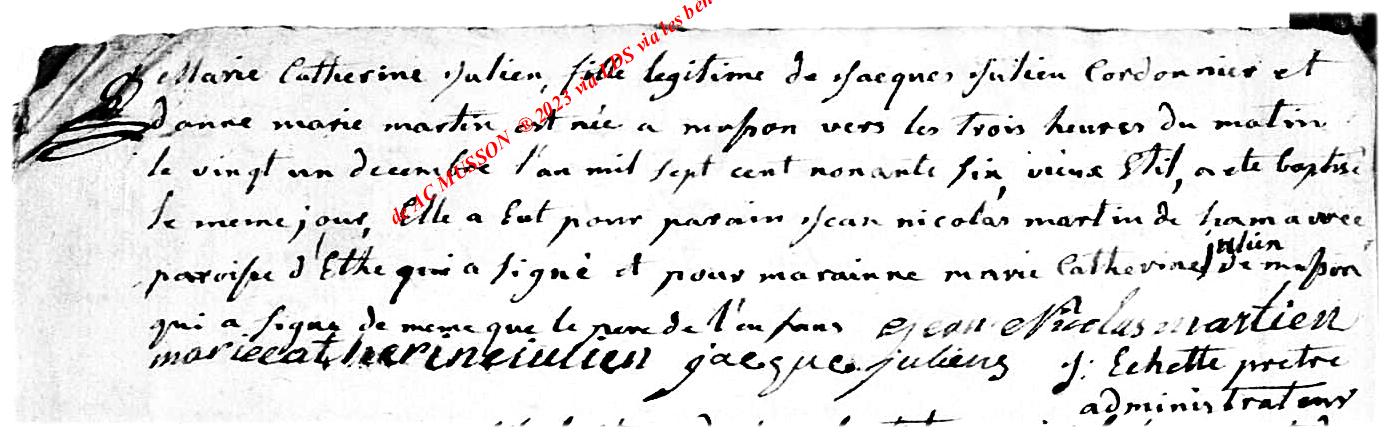 Marie Catherine Julien, fille legitime de Jacques Julien Cordonnier et
D'anne marie martin est née a musson vers les trois heures du matin
le vingt un decembre l'an mil sept cent nonante six, vieux Stil, a ete baptisé
le meme jour, Elle a Eut pour parain Jean nicolas martin de hamawée
paroisse d'Ethe qui a signé et pour marainne marie Catherine julien de musson
qui a signe de meme que le pere de l'enfans Jean Nicolas martien
marie catherine iulien jacque juliens J: Echette prètre
administrateur
de AC MUSSON ® 2023 via LDS via les ben